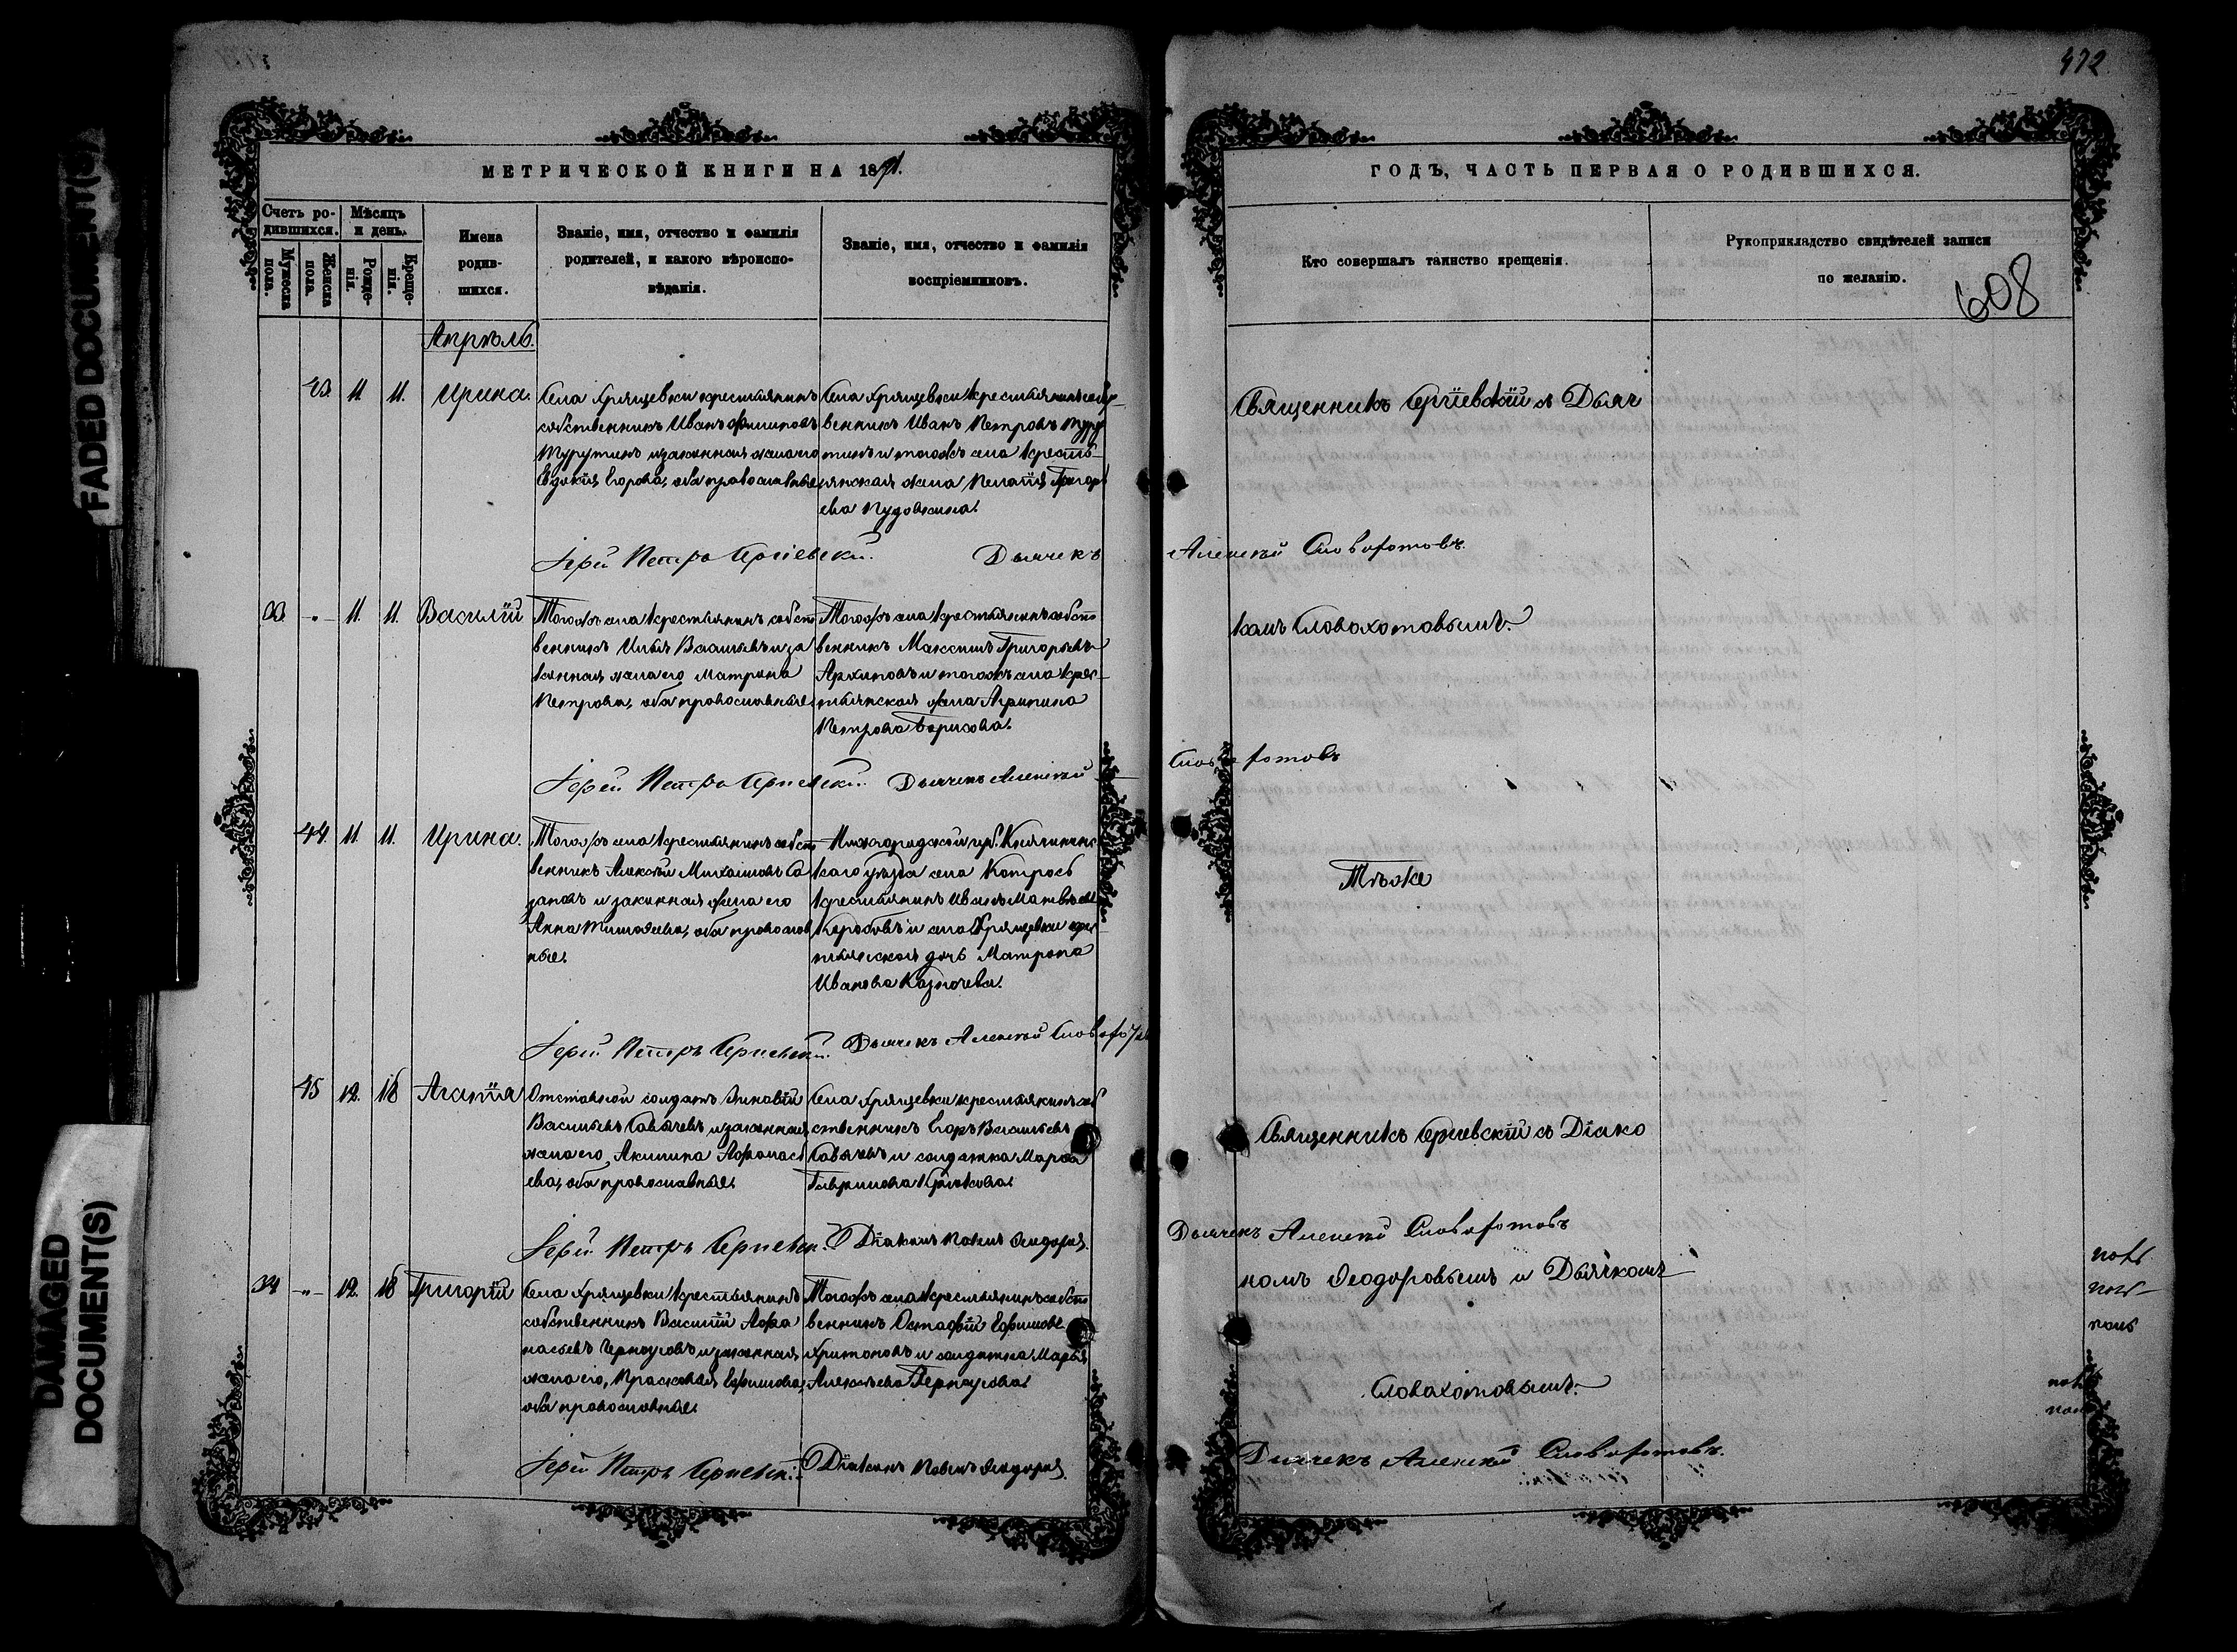 472
МЕТРИЧЕСКОЙ КНИГИ НА 1871.
ГОДЪ, ЧАСТЬ ПЕРВАЯ О РОДИВШИХСЯ.
Счетъ ро-
дившихся.
Мужеска пола.
Женска пола.
Мѣсяцъ
и день.
Рожде-
нія.
Креще-
нія.
Имена
родив-
шихся.
Званіе, имя, отчество и фамилія
родителей, и какого вѣроиспо-
вѣданія.
Званіе, имя, отчество и фамилія
воспріемниковъ.
Кто совершалъ таинство крещенія.
Рукоприкладство свидѣтелей записи
по желанію.
608
Апрѣль.
43. 11. 11. Ирина.
Села Хрящевки крестьянинъ
собственникъ Иванъ Филиповъ
Турутинъ и законная жена его
Евдокія Егорова, оба православные
Села Хрящевки крестьянинъ собст
венникъ Иванъ Петровъ Туру
тинъ и тогожъ села кресть-
янская жена Пелагія Григорь
ева Пудовкина.
Священникъ Сергіевскій съ Дьяч
Іерей Петръ Сергіевскій. Дьячекъ
Алексѣй Словохотовъ.
33. -"- 11. 11. Василій
Тогожъ села крестьянинъ собст
венникъ Илья Васильевъ и за
конная жена его Матрона
Петрова, оба православные
Тогожъ села крестьянинъ собст
венникъ Максимъ Григорьевъ
Архиповъ и тогожъ села крес-
тьянская жена Агрипина
Петрова Борисова.
комъ Словохотовымъ.
Іерей Петръ Сергіевскій. Дьячекъ Алексѣй
Словохотовъ
44. 11. 11. Ирина.
Тогожъ села крестьянинъ собст
венникъ Алексѣй Михаиловъ Са
зановъ и законная жена его
Анна Тимофеева, оба православ
ные.
Нижегородской губ. Княгининс
каго уѣзда села
крестьянинъ Иванъ Матвѣевъ
Коробовъ и села Хрящевки крес
тьянская дочь Матрона
Иванова Казначева.
Тѣже
Іерей Петръ Сергіевскій. Дьячекъ Алексѣй Словохотовъ
45 12. 18 Агапія
Отставной солдатъ Зиновій
Васильевъ Савачевъ и законная
жена его, Акилина Афанась
ева, оба православные.
Села Хрящевки крестьянинъ соб
ственникъ Егоръ Васильевъ
Савачевъ и солдатка Марѳа
Гаврилова Крюкова.
Священникъ Сергіевскій съ Діако
Іерей Петръ Сергіевскій. Діаконъ Павелъ Ѳеодоровъ.
Дьячекъ Алексѣй Словохотовъ
34 -"- 12. 18 Григорій
Села Хрящевки крестьянинъ
собственникъ Василій Афа
насьевъ Черноусовъ и законная
жена его, Прасковья Ефимова,
оба православные.
Тогожъ села крестьянинъ собст
венникъ Остафій Ефимовъ
Харитоновъ и солдатка Марья
Алексѣева Черноусова.
номъ Ѳеодоровымъ и Дьячкомъ
Словохотовымъ.
Іерей Петръ Сергіевскій. Діаконъ Павелъ Ѳеодоровъ.
Дьячекъ Алексѣй Словохотовъ.
FADED DOCUMENT(S)
DAMAGED
DOCUMENT(S)